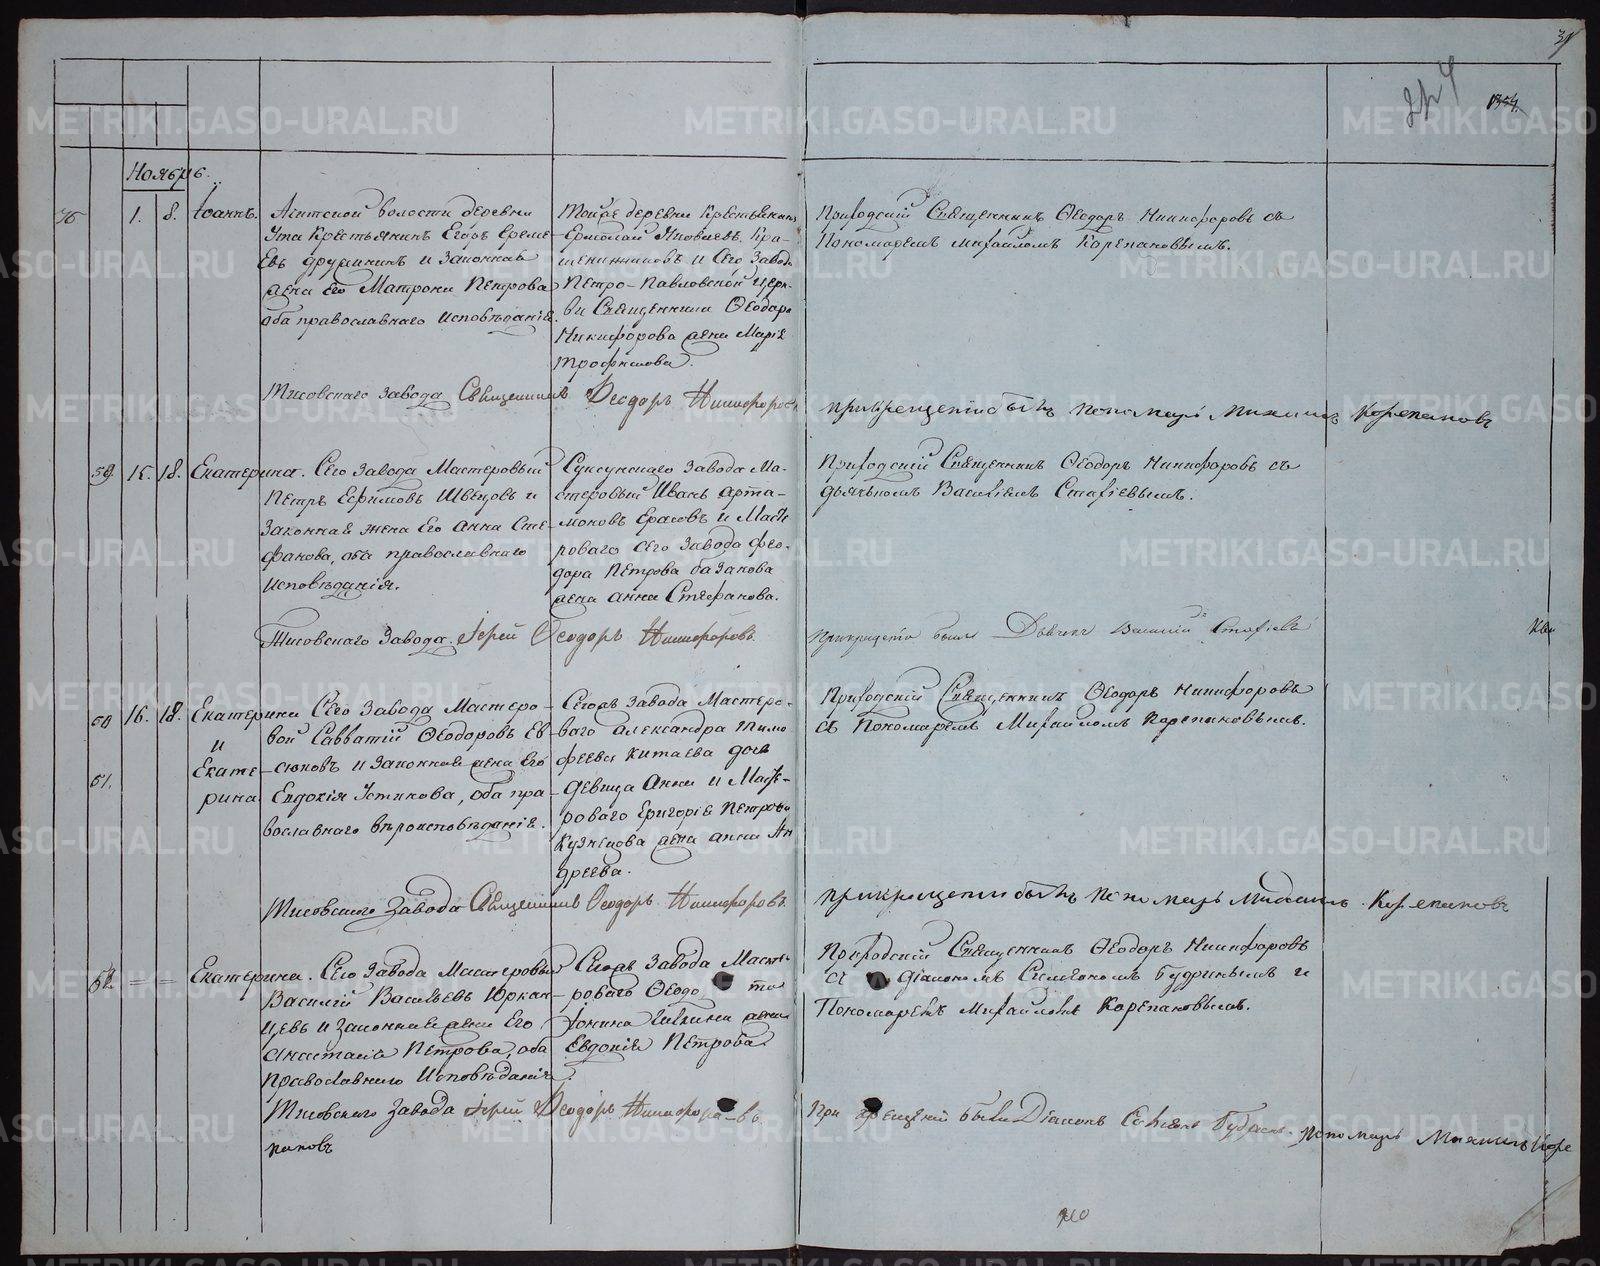 Ноябрь.
1. 8. Іоаннъ. Ачитской волости деревни
Ута Крестьянинъ Егоръ Ереме-
евъ Дружининъ и Законная
жена его Матрона Петрова
оба православнаго исповѣданія.
Тойже деревни Крестьянинъ
Ермолай Яковлевъ Кра-
шенинниковъ и Сего Завода
Петро-Павловской церк-
ви Священника Ѳеодора
Никифорова жена Марія
Трофимова.
Приходскій Священникъ Ѳеодоръ Никифоровъ съ
Пономаремъ Михаиломъ Корепановымъ.
Тисовскаго завода Священникъ Ѳеодоръ Никифоровъ
при крещеніи былъ пономарь Михаилъ Корепановъ
59. 15. 18. Екатерина. Сего Завода Мастеровый
Петръ Ефимовъ Швецовъ и
Законная жена Его Анна Сте-
фанова, оба православнаго
Исповѣданія.
Суксунскаго Завода Ма-
стеровый Иванъ Арта-
моновъ и Масте-
роваго сего Завода Фео-
дора Петрова Базанова
жена Анна Стефанова.
Приходскій Священникъ Ѳеодоръ Никифоровъ съ
дьячкомъ Василіемъ Стахіевымъ.
Тисовскаго Завода Іерей Ѳеодоръ Никифоровъ
При крещеніи былъ Дьячекъ Василій Стахіевъ
60 16. 18. Екатерина Сего Завода Мастеро-
и вой Савватій Ѳеодоровъ Ев-
61. Екате- сюковъ и Законная жена Его
рина. Евдокія Устинова, оба пра-
вославнаго вѣроисповѣданія.
Сегожъ Завода Мастеро-
ваго Александра Тимо
феева Китаева дочь
девица Анна и Масте-
роваго Григорія Петрова
Кузнецова жена Анна Ан
дреева.
Приходскій Священникъ Ѳеодоръ Никифоровъ
съ Пономаремъ Михаиломъ Корепановымъ.
Тисовского Завода Священникъ Ѳеодоръ Никифоровъ
при крещении былъ пономарь Михаилъ Корепановъ
62. = = Екатерина. Сего Завода Мастеровый
Василій Васильевъ Юркан-
цевъ и Законная жена Его
Анастасія Петрова, оба
Православнаго Исповѣданія.
Сегожъ Завода Масте-
роваго Ѳеодо
жена
Евдокія Петрова.
Приходскій Священникъ Ѳеодоръ Никифоровъ
съ діакономъ Симеономъ Будринымъ и
Пономаремъ Михаиломъ Корепановымъ.
Тисовскаго Завода Іерей Ѳеодоръ Никифоровъ
При крещеніи были Діаконъ Симеонъ Будринъ. пономарь Михаилъ Коре
пановъ